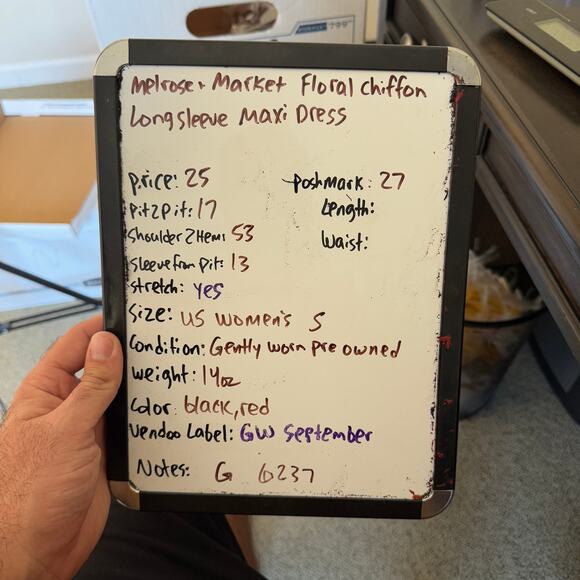 Melrose + Market Floral Chiffon
Longsleeve Maxi Dress
price: 25
poshmark: 27
Pit2Pit: 17
Length:
Shoulder2Hem: 53
Waist:
Sleeve from Pit: 13
Stretch: yes
Size: US Women's S
Condition: Gently worn pre owned
Weight: 14oz
Color: black, red
Vendoo Label: GW September
Notes: G 6237